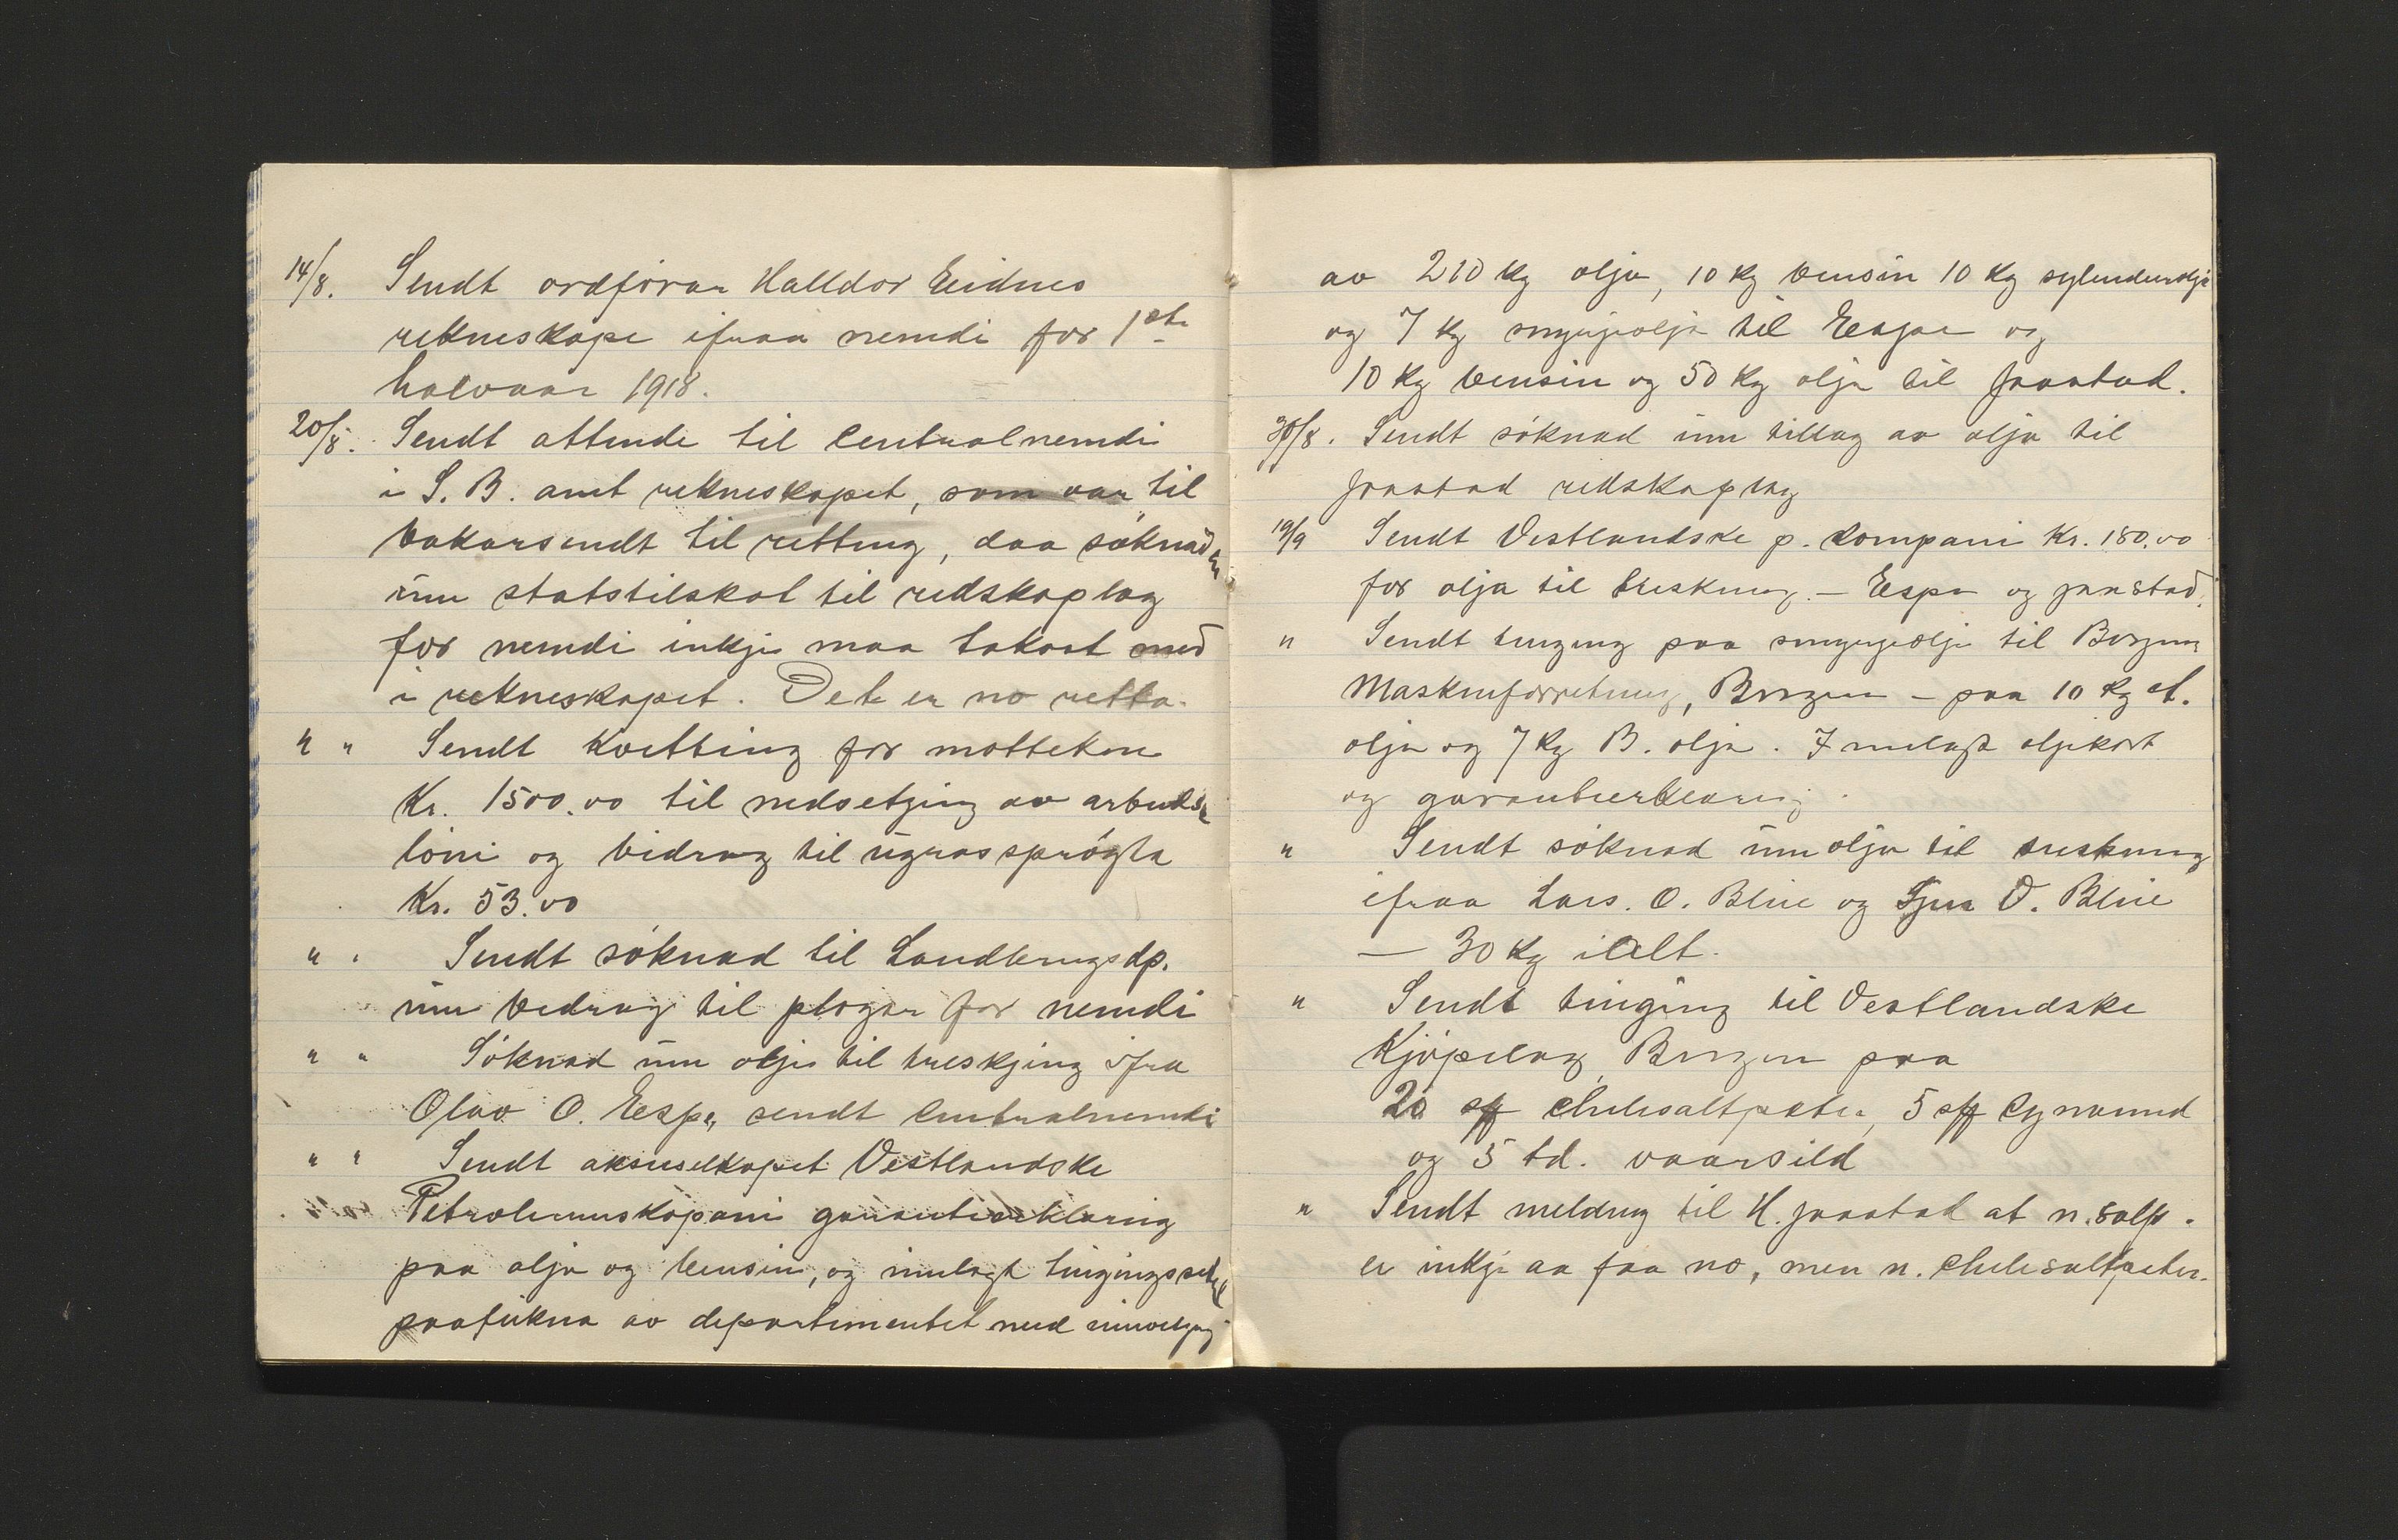 14/8. Sendt ordförar Halldor Eidnes
rekneskape ifraa nemdi for 1ste
halvaar 1918.
20/8. Sendt attende til Centralnemdi
i S. B. amt rekneskapet, som var til
bakarsendt til retting, daa söknaden
um statstilskot til redskaplag
for nemdi inkje maa takast med
i rekneskapet. Dete er no retta.
" " Sendt kvitting for motteken
Kr. 1500.00 til nedsetjing av arbeids
löni og bidrag til ugrassprögta
Kr. 53.00
" " Sendt söknad til Landbrugsdp.
um bedrag til plogar for nemdi
" " Söknad um olje til treskjing ifra
Olav O. Espe, sendt Centralnemdi
" " Sendt aksieselkapet Vestlandske
Petroleumskopani garantierklaring
paa olja og bensin, og innlagt tingingssetel
paateikna av departementet med
av 210 kg olja, 10 kg bensin 10 kg sylenderolja
og 7 kg smyrjeolja til Espe og
10 kg bensin og 50 kg olja til Jaastad.
30/8. Sendt söknad um tillag av olja til
Jaastad redskaplag
19/9 Sendt Vestlandske p. kompani Kr. 180.00
for olja til treskning. – Espe og Jaastad.
" Sendt tinging paa smyrjeolje til Bergens
Maskinforretning, Bergen – paa 10 kg st.
olja og 7 kg B. olja. Innlagt oljekort
og garantierklaring.
" Sendt söknad um olja til treskning
ifraa Lars. O. Blie og O. Blie
– 30 kg ialt.
" Sendt tinging til Vestlandske
Kjöpelag, Bergen paa
20 sk chilesaltpeter, 5 sk Cynamid
og 5 td. vaarsild
" Sendt melding til H. Jaastad at n. salp.
er inkje aa faa no, men n. chilesaltpeter.